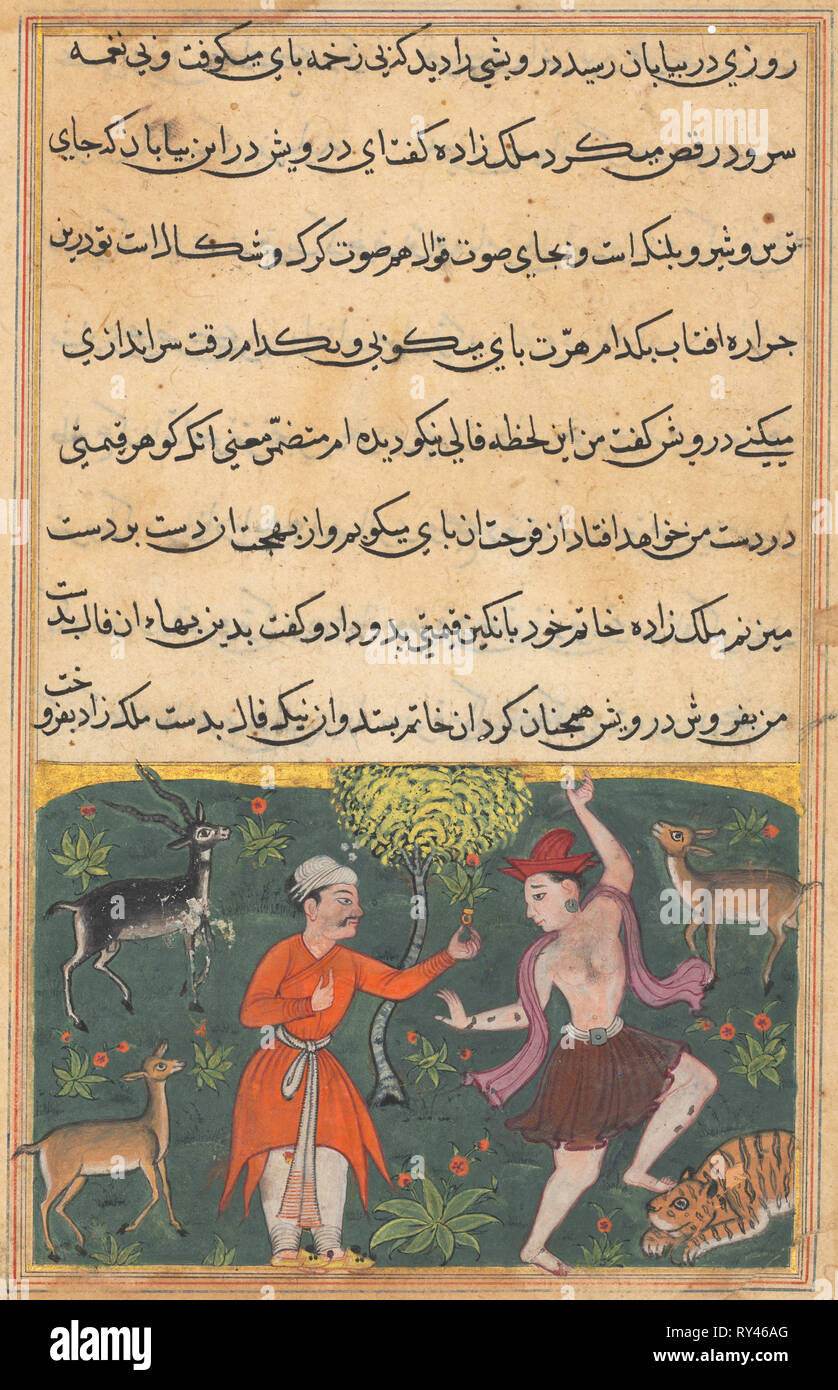 روزي در بيابان رسيد درويشي را ديد كه بي زخمه باي ميكوفت و بي نغمه
سرود رقص ميكرد ملك زاده كفت اي درويش در اين بيابان كه جاي
ترس و شير و بلنك است و بجاي صوت قوال هم صوت كرك و شكال است تو درين
حراره افتاب بكدام هزّت باي ميكوبي و بكدام رقت سراندازي
ميكني درويش كفت من اين لحظه فالي نيكو ديده ام متضمّن معني انكه كوهر قيمتي
در دست من خواهد افتاد از فرحت ان باي ميكوبم و از بهجت ان دست بر دست
ميزنم ملك زاده خاتم خود با نكين قيمتي بدو داد و كفت بدين بهاء ان فال بدست
من بفروش درويش همچنان كرد ان خاتم بستد و ان نيك فال بدست ملك زاد بفروخت
alamy
Image ID: RY46AG
www.alamy.com